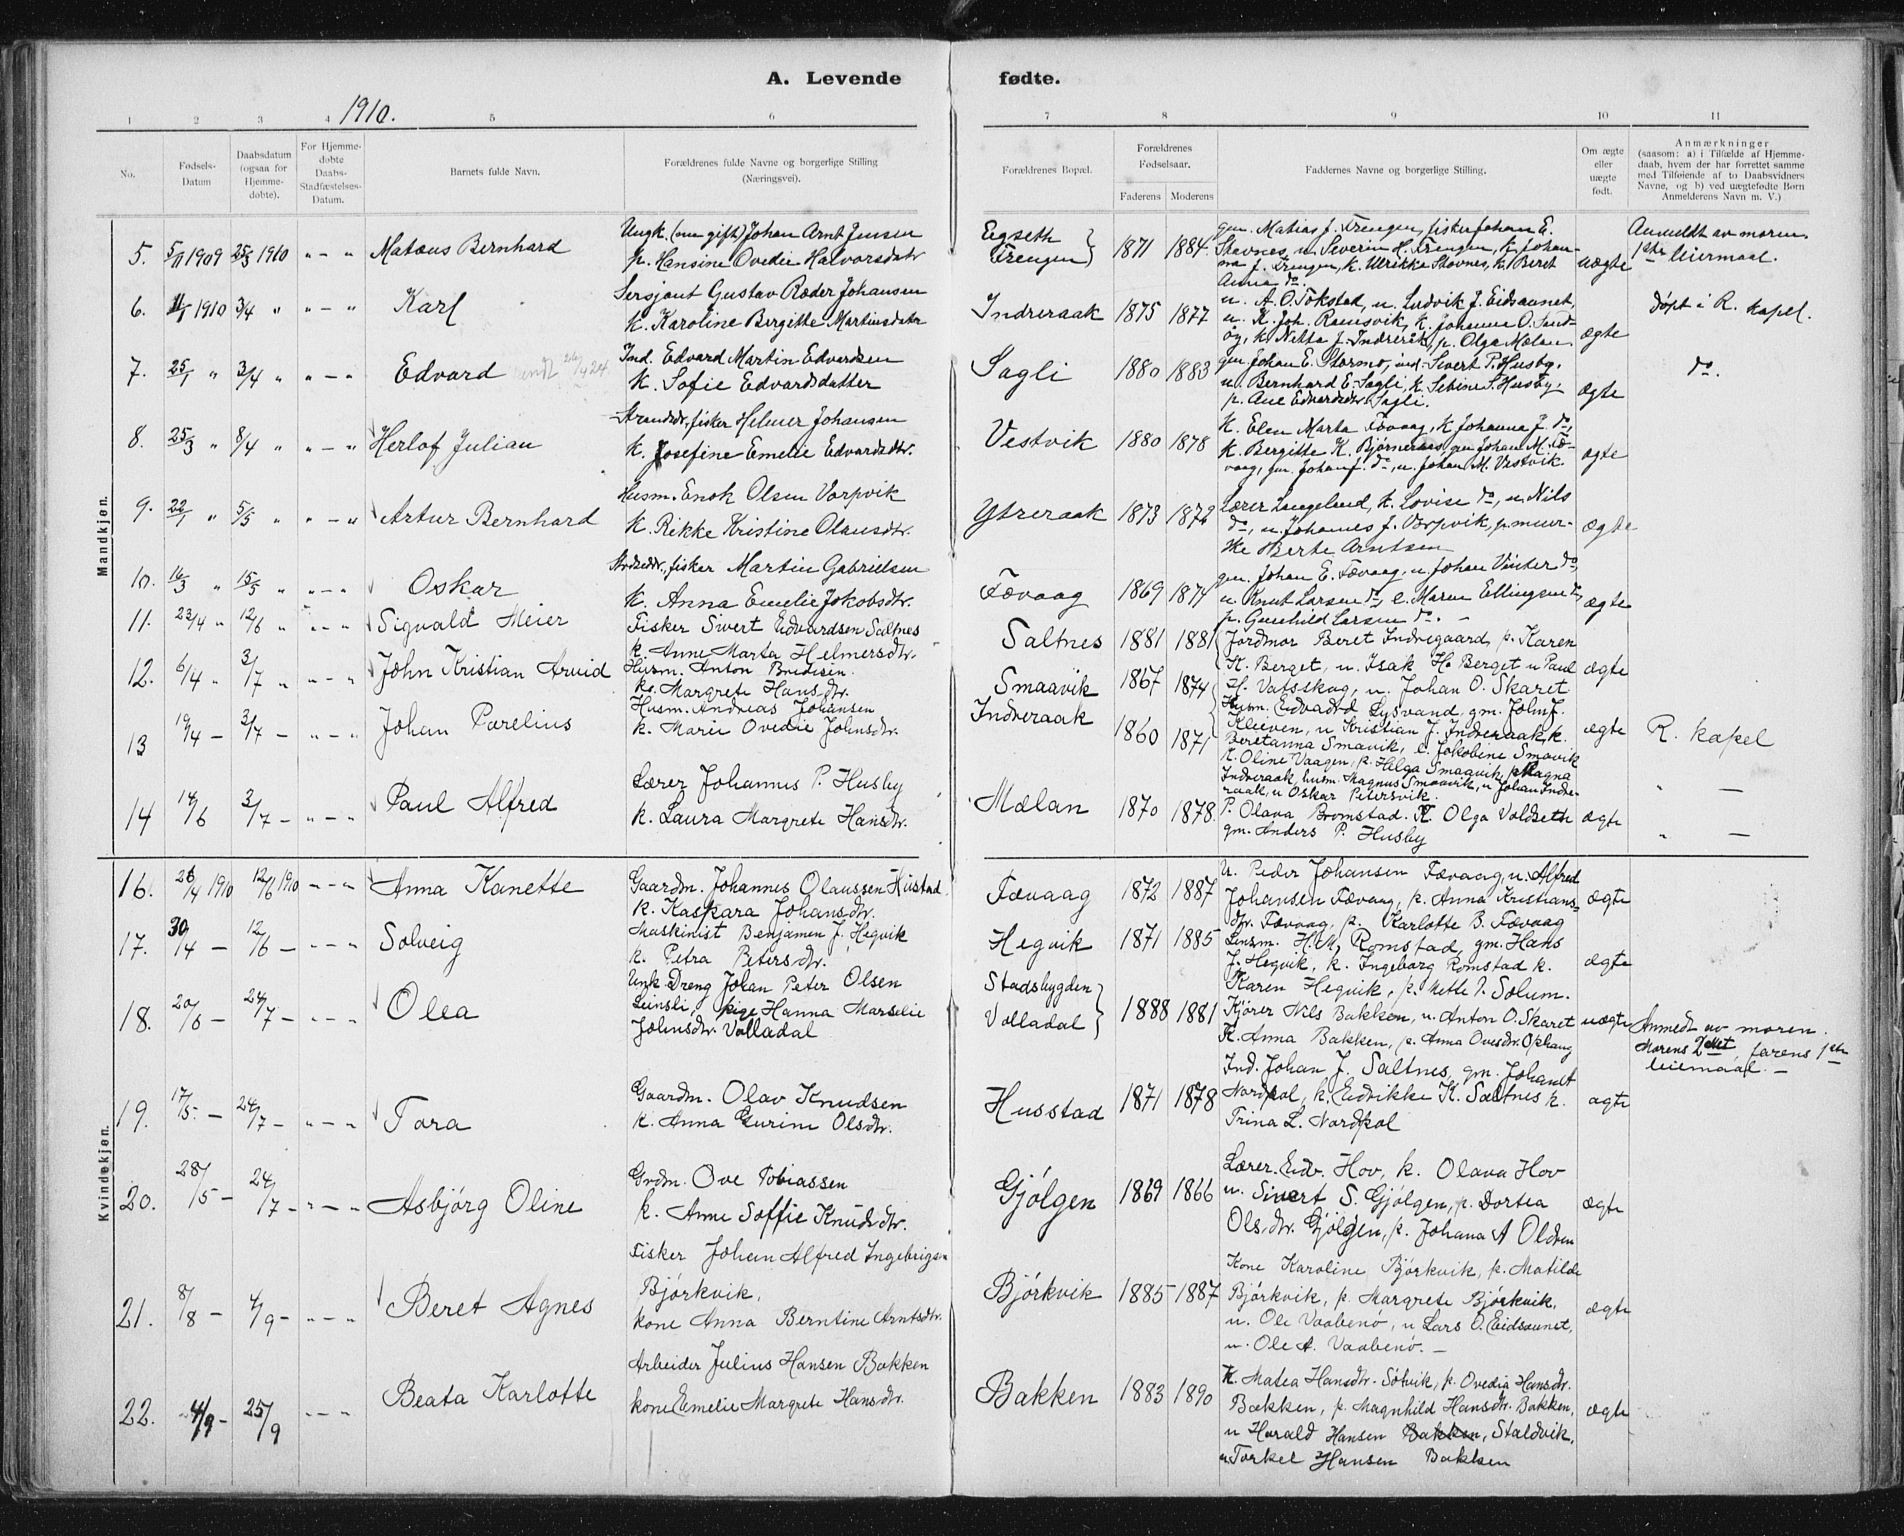 A. Levende fødte.
1910.
1 2 3 4 5 6 7 8 9 10 11
No.
Fødsels-Datum
Daabsdatum (ogsaa for Hjemmedøbte).
For Hjemmedøbte Daabs-Stadfæstelses-Datum.
Barnets fulde Navn.
Forældrenes fulde Navne og borgerlige Stilling (Næringsvei).
Forældrenes Bopæl.
Forældrenes Fødselsaar.
Faderens Moderens
Faddernes Navne og borgerlige Stilling.
Om ægte eller uægte født.
Anmærkninger (saasom: a) i Tilfælde af Hjemmedaab, hvem der har forrettet samme med Tilføiende af to Daabsvidners Navne, og b) ved uægtefødte Børn Anmelderens Navn m. V.)
Mandkjøn.
5. 5/11 1909 25/3 1910 " - " Mataus Bernhard
Ungk. (nu gift) Johan Arnt Jensen
p. Hansine Ovedie Halvorsdatr
Egseth
Trengen } 1871 1884
gm. Matias J. Trengen, fisker Johan E.
Stavnes, u. Severin H. Trengen, k. Johan-
na J. Trengen, k. Ulrikke Stavnes, k. Beret
Anna do
uægte
Anmeldt av moren.
1ste leiermaal.
6. 1910 3/4 " " - " Karl
Sersjant Gustav Ræder Johansen
k. Karoline Bergitte Martinsdatr
Indreraak 1875 1877
u. A. O. Tokstad, u. Ludvik J. Eidsaunet,
u. K. Joh. Ramsvik, k. Johanna O. Sand-
øy, k. Nitta J. Indreråk, p. Olga Mælan
ægte
Døpt i R. kapel.
7. 25/1 " 3/4 " " - " Edvard
Ind. Edvard Martin Edvardsen
k. Sofie Edvardsdatter
Sagli 1880 1883
gm Johan E. Stormo, ind. Sivert P. Husby,
u. Bernhard E. Sagli, k. Sebine S. Husby,
p. Ane Edvardsdtr Sagli.
ægte
do.
8. 25/3 " 8/4 " " - " Herlof Julian
Strandsdr, fisker Helmer Johansen
k. Josefine Emelie Edvardsdtr.
Vestvik 1880 1878
k. Elen Marta Fævaag, k. Johanna J. do,
k. Bergitte K. Bjørneraas, gm Johan M. Fæ-
vaag, gm. Johan J. do, u. Johan M. Vestvik.
ægte
9. 22/1 " 5/5 " " - " Artur Bernhard
Husm. Enok Olsen Vorpvik
k. Rikke Kristine Olausdtr.
Ytreraak 1873 1872
Lærer Langeland, k. Lovise do, u. Nils
do, u. Johannes J. Vorpvik, p. muur-
ke Berte Arntsen
ægte
10. 16/3 " 15/5 " " - " Oskar
fisker Martin Gabrielsen
k. Anna Emelie Jakobsdtr.
Fævaag 1869 1877
gm. Johan E. Fævaag, u Johan Vinter do,
u Knut Larsen do, e. Maren Ellingsen do,
p. Gunhild Larsen do. -
ægte
11. 23/4 " 12/6 " " - " Sigvald Meier
Fisker Sivert Edvardsen Saltnes
k. Anne Marta Helmersdtr.
Saltnes 1881 1881
Jordmor Beret Indregaard, p. Karen
K. Berget, u. Isak H. Berget u Paul
H. Vatsskag, u. Johan O. Skaret
ægte
12. 6/4 " 3/7 " " - " John Kristian Arvid
Husm. Anton Bredesen
k. Margrete Hansdtr.
Smaavik 1867 1874
Husm. Edvadrd Lysvand, gm. John J.
Kleiven, u Kristian J. Indreraak, k.
Beretanna Smavik, e. Jakobine Smavik
13 19/4 - 3/7 - " - " Johan Parelius
Husm. Andreas Johansen
k. Marie Ovedie Johnsdtr.
Indreraak 1860 1871
k. Oline Vaagen, p. Helga Smaavik, p Ragna
Indreraak, husm. Magnus Smaavik, u Johan Indre-
raak, u Oskar Petersvik.
ægte
R. kapel
14 14/6 3/7 - " - " Paul Alfred
Lærer Johannes P. Husby
k. Laura Margrete Hansdtr.
Mælan 1870 1878.
P. Olava Bromstad. K Olga Voldseth
gm. Anders P. Husby
ægte
" -
" -
Kvindekjøn.
16. 26/4 1910 12/6 1910 " - " Anna Kanette
Gaardm. Johannes Olaussen Hustad
k. Kaspara Johansdtr.
Fævaag 1872 1887
U. Peder Johansen Fævaag, u. Alfred
Johansen Fævaag, p. Anna Kristians-
dtr. Fævaag, p. Karlotte B. Fævaag
ægte
17. 30/4 - 12/6 - " - " Solveig
Maskinist Benjamen J. Hegvik
k. Petra Petersdtr.
Hegvik 1871 1885
Lensm. H. M. Romstad, gm. Hans
J. Hegvik, k. Ingeborg Romstad k.
Karen Hegvik, p. Mette P. Solum.
ægte
18. 20/6 - 24/7 - " - " Olea
Unk Dreng Johan Peter Olsen
Leinsli, pige Hanna Marselie
Johnsdtr. Valladal
Stadsbygden
Valladal } 1888 1881
Kjører Nils Bakken, u. Anton O. Skaret
K. Anna Bakken, p. Anna Ovesdtr. Ophaug
uægte
Anmedt av moren.
Morens 2det, farens 1ste
leiermaal. -
19. 17/5 - 24/7 - " - " Tora
Gaardm. Olav Knudsen
k. Anna Gurine Olsdtr.
Husstad 1871 1878
Ind. Johan J. Saltnes, gm. Johan T
Nordpol, k. Endrikke K. Saltnes k.
Trina L. Nordpol
ægte
20. 28/5 - 24/7 - " - " Asbjørg Oline
Grdm. Ove Tobiassen
k. Anne Soffie Knudsdtr.
Gjølgen 1869 1866
Lærer. Edv. Hov, k. Olava Hov
u. Sivert S. Gjølgen, p. Dortea
Olsdtr. Gjølgen, p. Johana A Olden
ægte
21. 8/8 - 4/9 - " - " Beret Agnes
Fisker Johan Alfred Ingebrigsn
Bjørkvik,
kone Anna Berntine Arntsdtr.
Bjørkvik 1885 - 1887
Kone Karoline Bjørkvik, p. Matilde
Bjørkvik, p Margrete Bjørkvik,
u. Ole Vaabenø, u Lars O. Eidsaunet,
u. Ole A. Vaabenø. -
ægte
22. 4/9 - 25/9 " - " Beata Karlotte
Arbeider Julius Hansen Bakken
kone Emelie Margrete Hansdtr.
Bakken 1883 1890
K. Matea Hansdtr. Søtvik, p. Ovedia Hansdtr.
Bakken, p. Magnhild Hansdtr. Bakken,
u Harald Hansen Bakken, Staldvik,
u Torkel Hansen Bakken
ægte